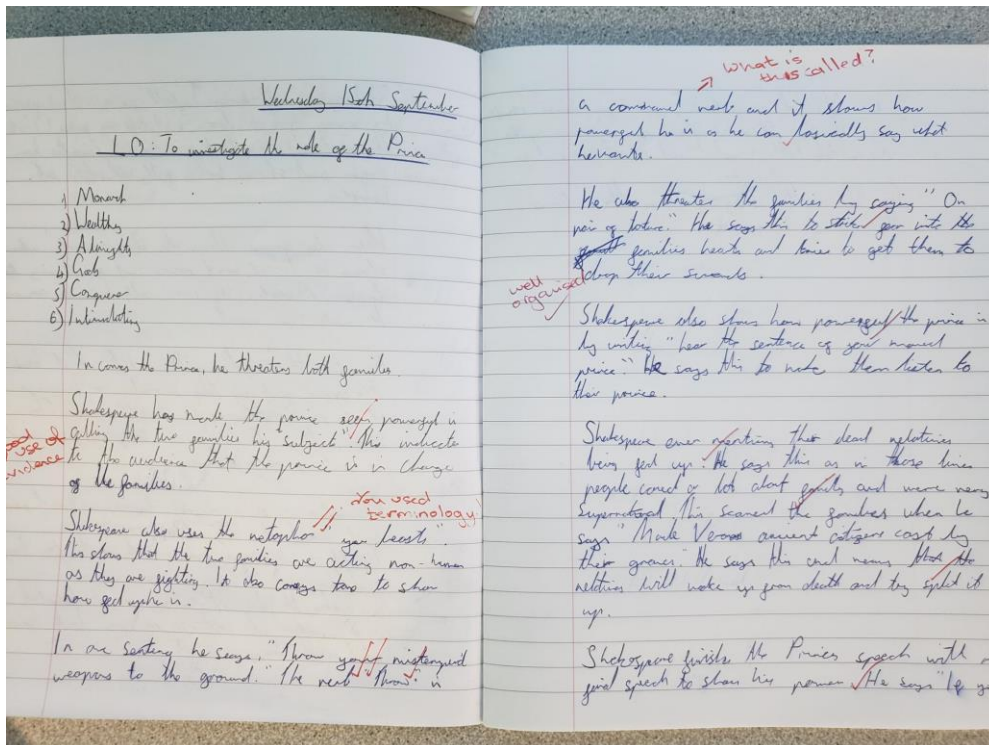 Wednesday 15th September
LO: To investigate the role of the Prince
1) Monarch
2) Wealthy
3) Almighty
4) Gods
5) Conqueror
6) Intimidating
In comes the Prince, he threatens both families.
Shakespeare has made the prince seem powerful is
calling the two families his "subject". This indicate
to the audience that the prince is in charge
of the families.
good use of evidence
You used terminology
Shakespeare also uses the metaphor "you beasts".
This shows that the two families are acting non-human
as they are fighting. It also conveys to show
how fed up he is.
In one sentence he says, "Throw your mistempered
weapons to the ground." The verb "Throw" is
What is this called?
a command verb and it shows how
powerful he is as he can basically say what
he wants.
He also threatens the families by saying "On
pain of torture." He says this to strike fear into the
families hearts and tries to get them to
drop their swords.
well organised
Shakespeare also shows how powerful the prince is
by writing "hear the sentence of your moved
prince". He says this to make them listen to
their prince.
Shakespeare even mentions their dead relatives
being fed up. He says this as in those times
people cared a lot about family and were very
Supernatural. This scared the families when he
says "Made Verona ancient citizens cast by
their graves." He says this and means that the
relatives will wake up from death and try split it
up.
Shakespeare finish the Princes speech with a
final speech to show his power. He says "If yo